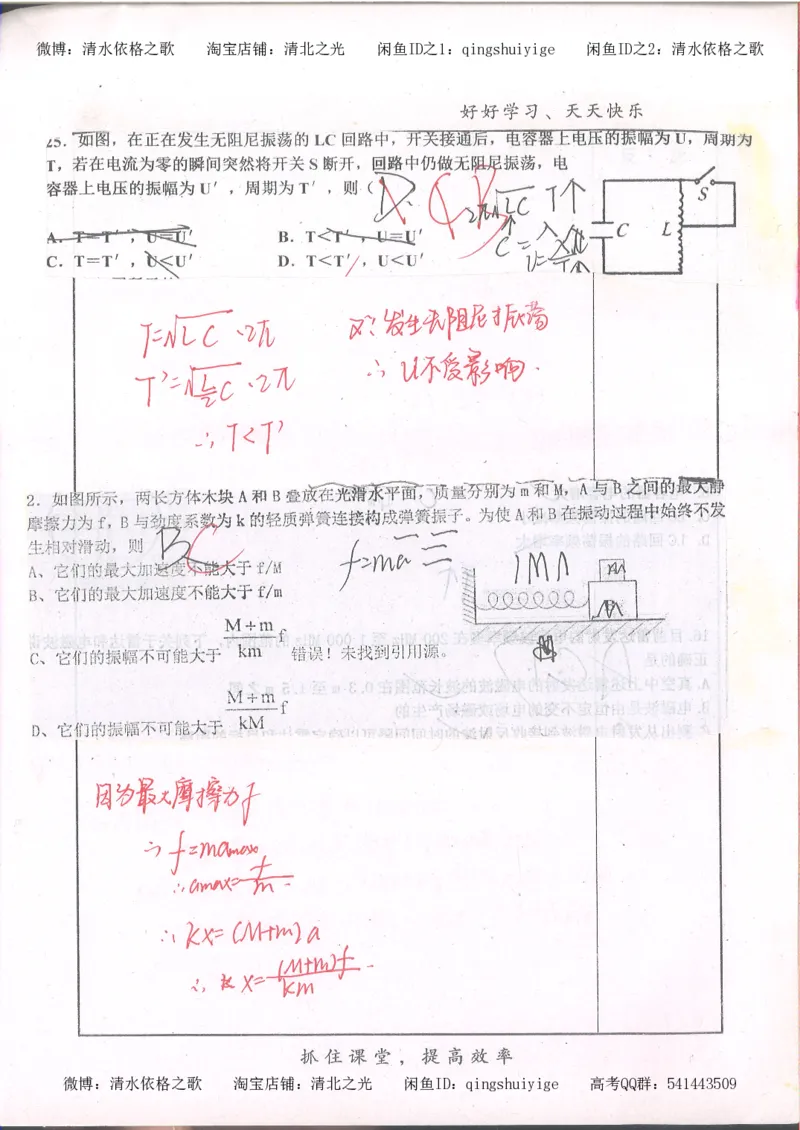 微博：清水依格之歌 淘宝店铺：清北之光 闲鱼ID之1：qingshuiyige 闲鱼ID之2：清水依格之歌
好好学习、天天快乐
25．如图，在正在发生无阻尼振荡的 LC 回路中，开关接通后，电容器上电压的振幅为 U，周期为
T，若在电流为零的瞬间突然将开关 S 断开，回路中仍做无阻尼振荡，电
容器上电压的振幅为 U′，周期为 T′，则（
2π√LC T个
A．T＝T′，U＝U′ B．T＜T′，U＝U′
C．T＝T′，U＜U′ D．T＜T′，U＜U′
S
C L
T=√LC·2π
T'=√L/2C·2π
∴T<T'
又∵发生无阻尼振荡
∴U不受影响.
2．如图所示，两长方体木块 A 和 B 叠放在光滑水平面，质量分别为 m 和 M，A 与 B 之间的最大静
摩擦力为 f，B 与劲度系数为 k 的轻质弹簧连接构成弹簧振子。为使 A 和 B 在振动过程中始终不发
生相对滑动，则 B C
f=ma
A、它们的最大加速度不能大于 f/M
B、它们的最大加速度不能大于 f/m
C、它们的振幅不可能大于 M+m/km f 错误！未找到引用源。
D、它们的振幅不可能大于 M+m/kM f
因为最大摩擦力f
∴f=mamax
∴amax=f/m.
∴kx=(M+m)a
∴x=(M+m)f/km.
抓住课堂，提高效率
微博：清水依格之歌 淘宝店铺：清北之光 闲鱼ID：qingshuiyige 高考QQ群：541443509